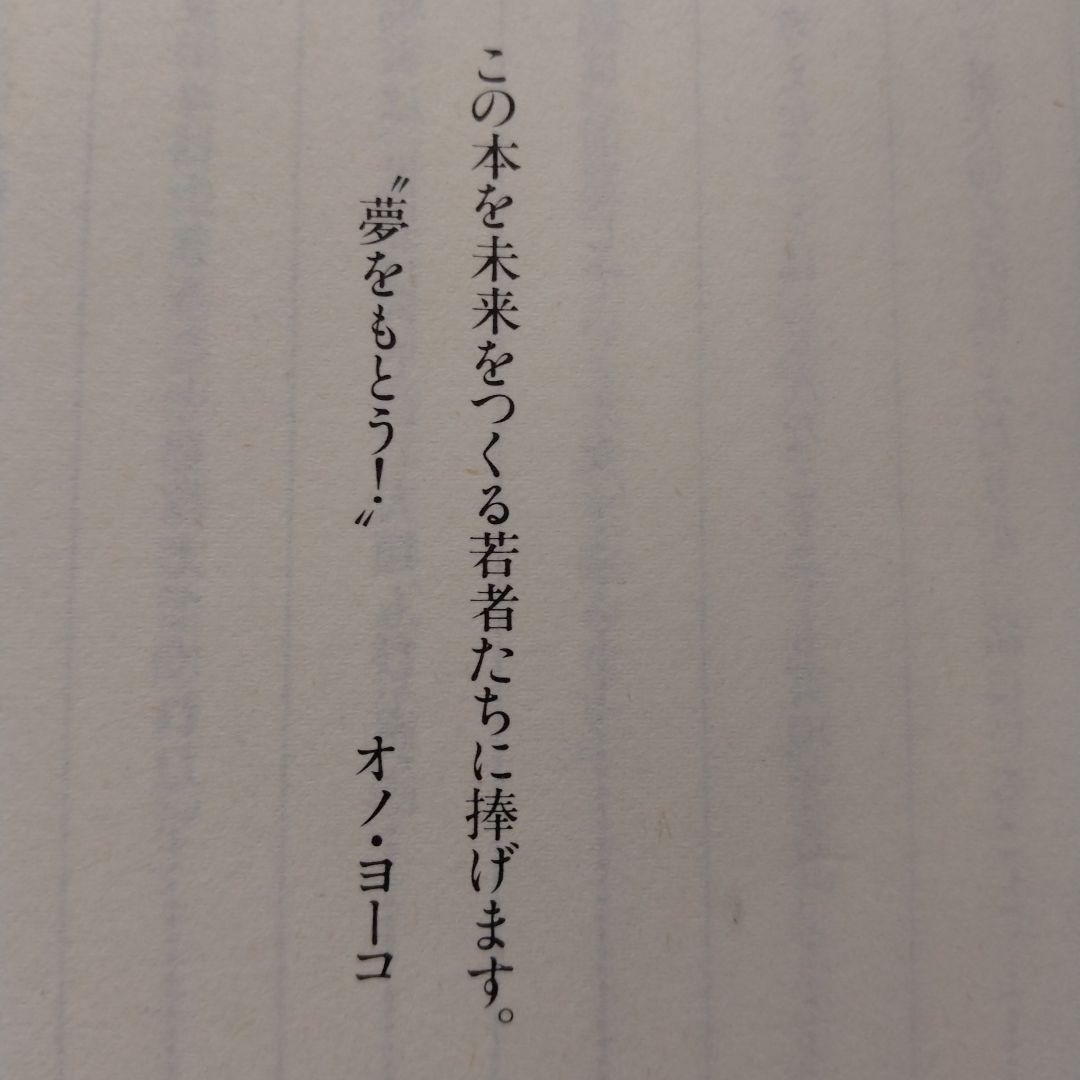 この本を未来をつくる若者たちに捧げます。
〝夢をもとう！〟 オノ・ヨーコ